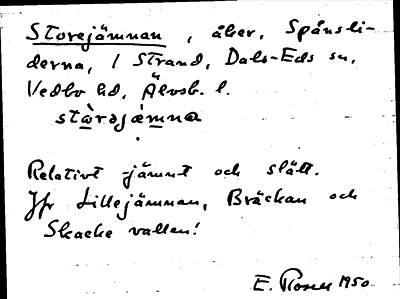 Storejämnan, åker, Spånsli-
derna, / Strand, Dals-Eds sn,
Vedbo hd, Älvsb. l.
stàrəjæmna
Relativt jämnt och slätt.
Jfr Lillejämnan, Bräckan och
Skacke vallen!
E. Rosen 1950